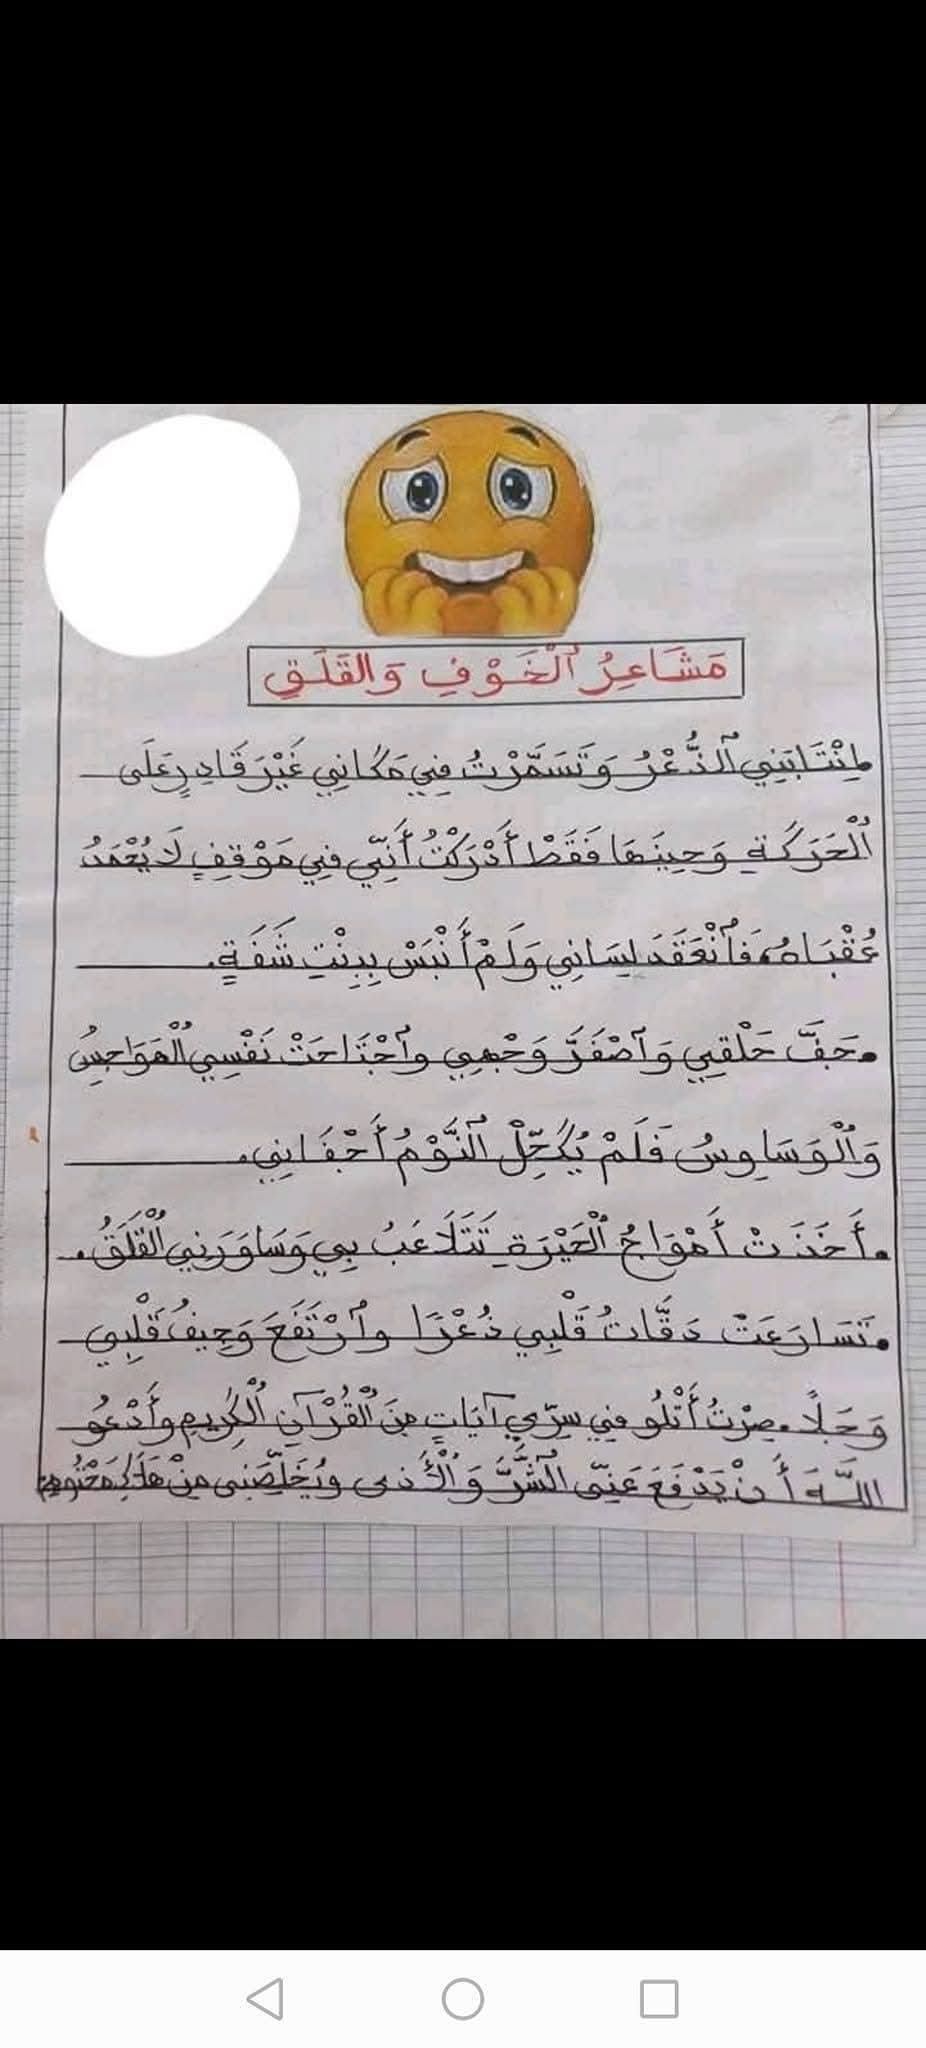 مَشَاعِرُ ٱلْخَوْفِ وَالقَلَقِ
اِنْتَابَنِي ٱلذُّعْرُ وَتَسَمَّرْتُ فِي مَكَانِي غَيْرَ قَادِرٍ عَلَى
ٱلْحَرَكَةِ وَحِينَهَا فَقَطْ أَدْرَكْتُ أَنِّي فِي مَوْقِفٍ لَا يُحْمَدُ
عُقْبَاهُ، فَٱنْعَقَدَ لِسَانِي وَلَمْ أَنْبَسْ بِبِنْتِ شَفَةٍ.
• جَفَّ حَلْقِي وَٱصْفَرَّ وَجْهِي وٱجْتَاحَتْ نَفْسِي ٱلْهَوَاجِسُ
وَٱلْوَسَاوِسُ فَلَمْ يُكَحِّلْ ٱلنَّوْمُ أَجْفَانِي.
• أَخَذَتْ أَمْوَاجُ ٱلْحَيْرَةِ تَتَلَاعَبُ بِي وَسَاوَرَنِي ٱلْقَلَقُ.
• تَسَارَعَتْ دَقَّاتُ قَلْبِي ذُعْرًا وٱرْتَفَعَ وَجِيفُ قَلْبِي
وَجَلًا. صِرْتُ أَتْلُو فِي سِرِّي آيَاتٍ مِنَ ٱلْقُرْآنِ ٱلْكَرِيمِ وأَدْعُو
اللَّهَ أَنْ يَدْفَعَ عَنِّي ٱلشَّرَّ وَٱلْأَذَى ويُخَلِّصَنِي مِنْ